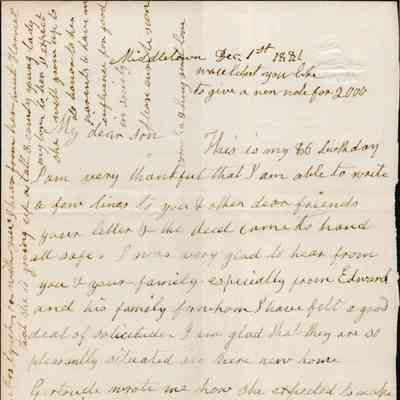 Middletown Dec. 1st 1886
wouldent you like
to give a non note for 2000
My dear son
This is my 86 birthday
I am very thankful that I am able to write
a few lines to you & other dear friends
your letter & the deed came to hand
all safe. I was very glad to hear from
you & your family especially from Edward
and his family for whom I have felt a good
deal of solicitude. I am glad that they are so
pleasantly situated in there new home
Gertrude wrote me how she expected to make
and she is growing up a tall & comely young lady
she will grow up to
do honor to her
parents & have an
influence for good
in society